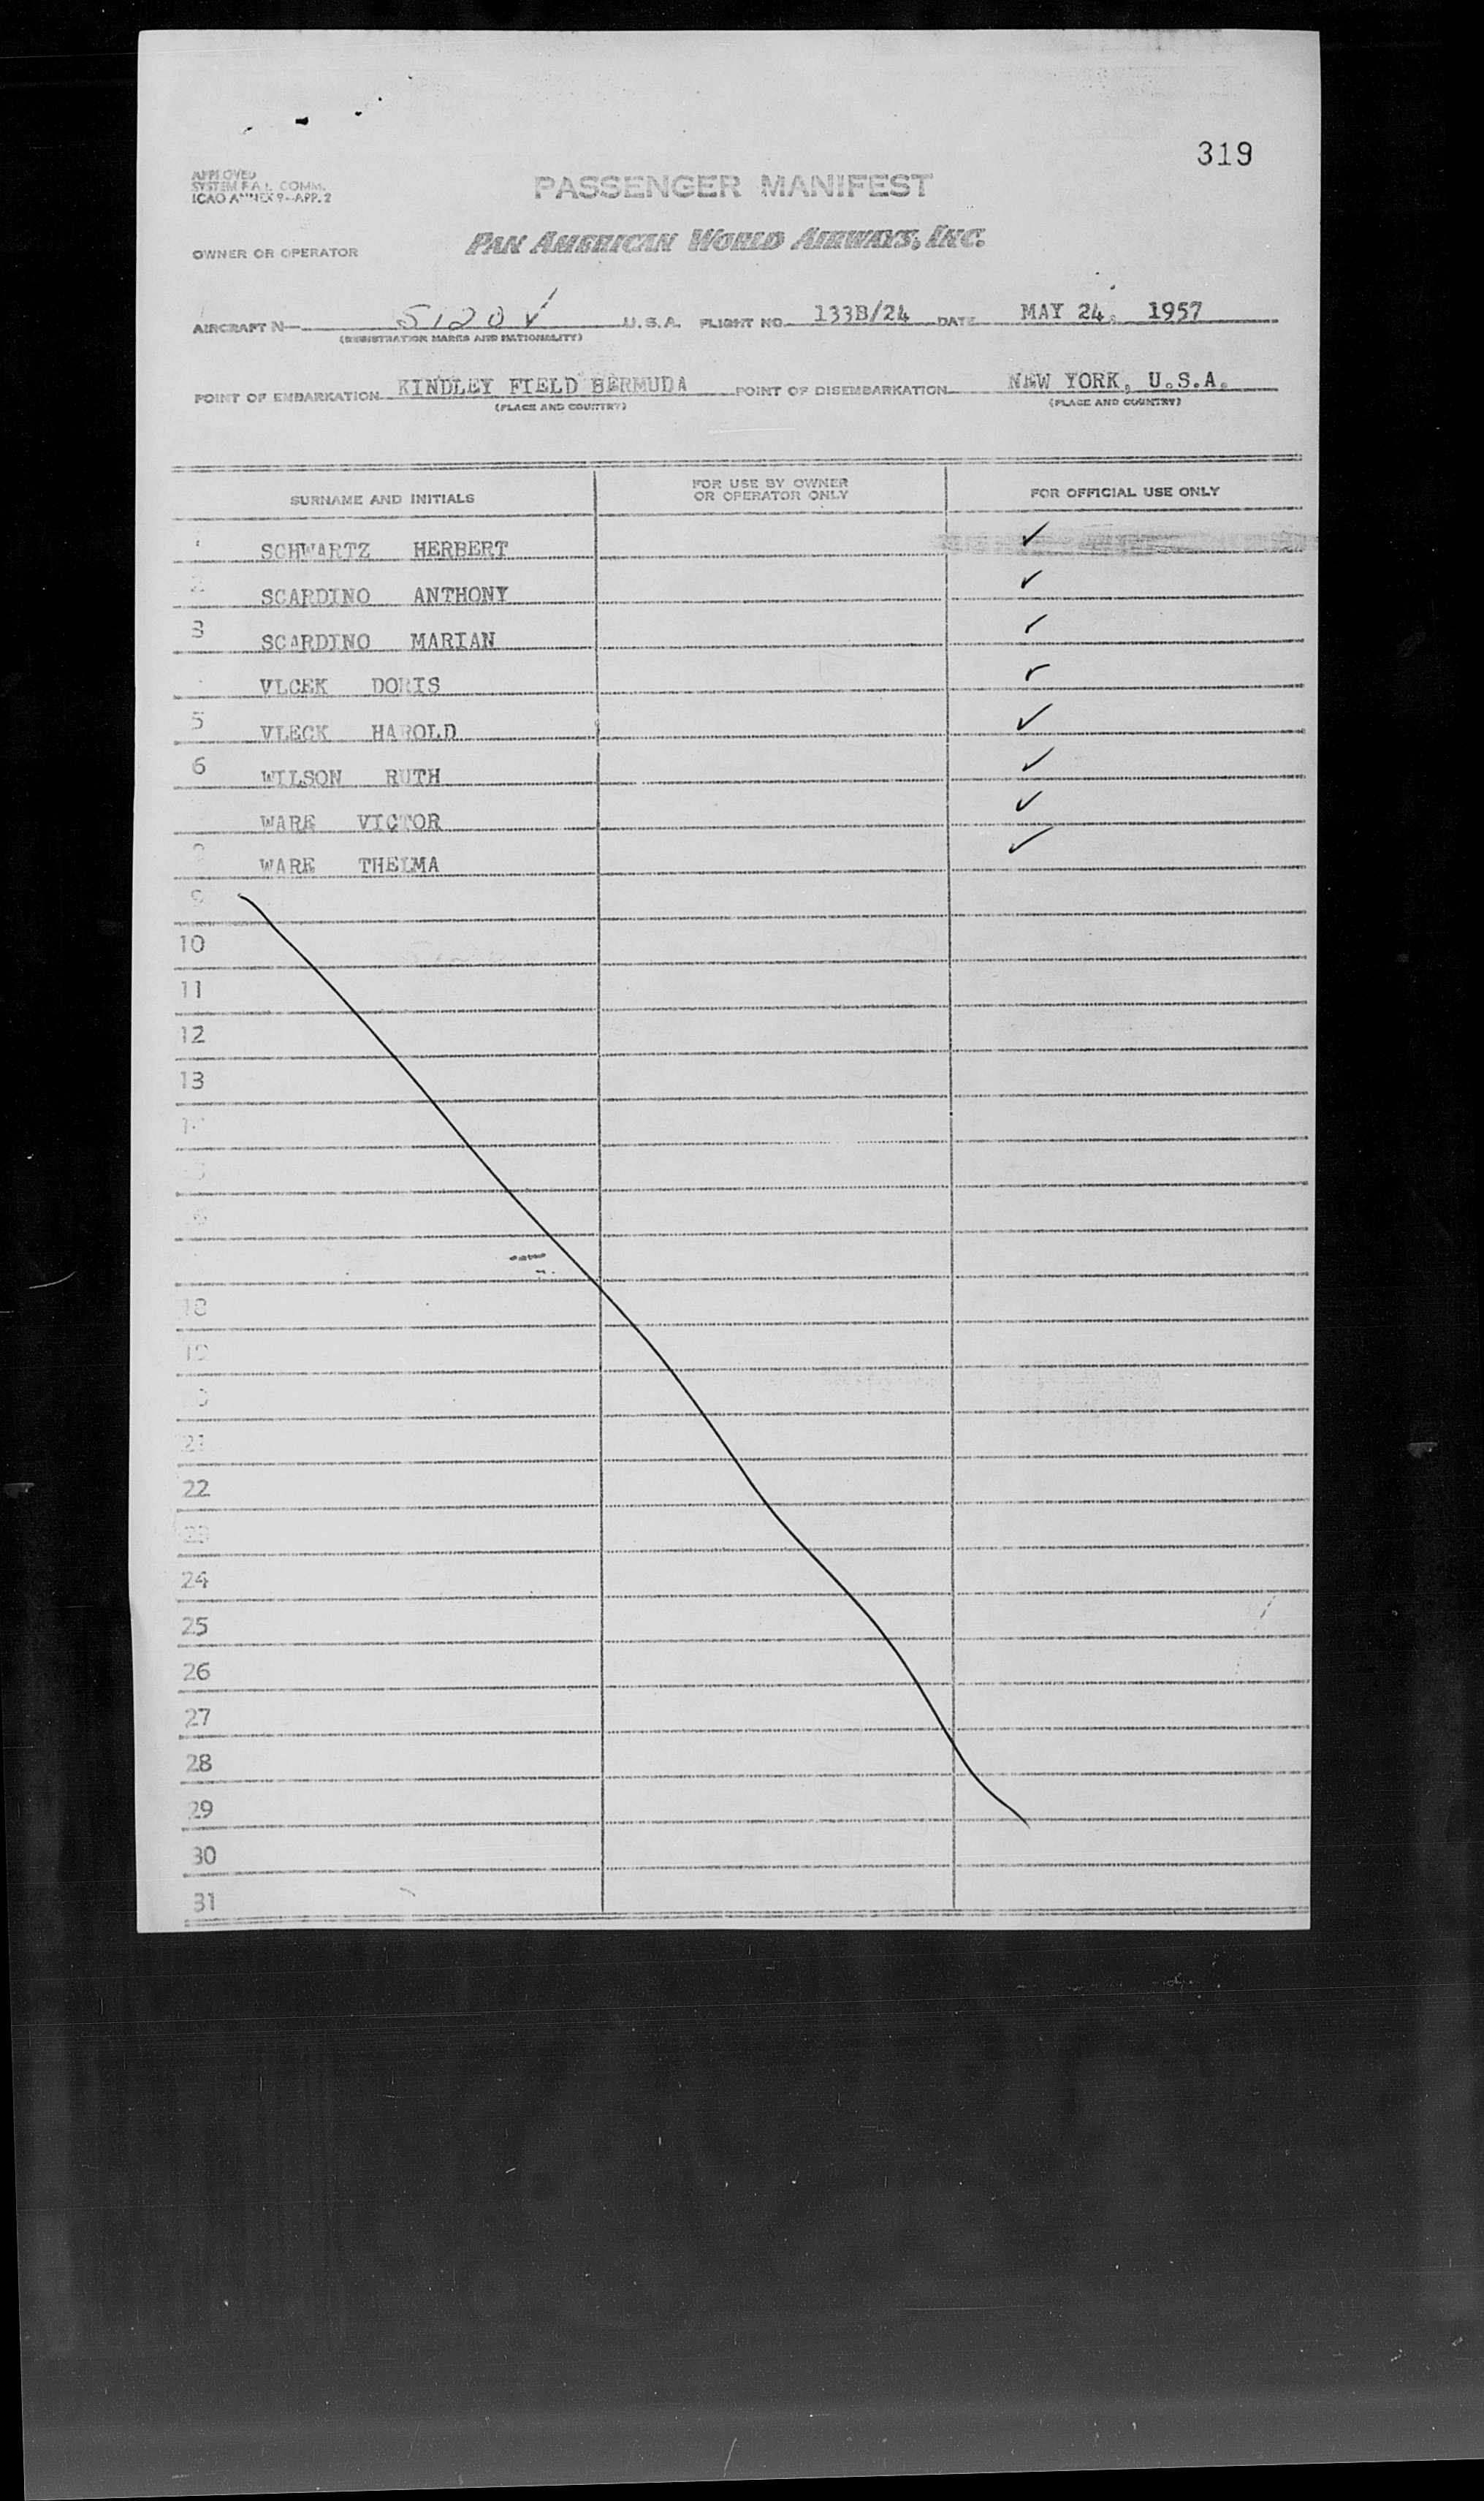 319
APPROVED
SYSTEM F.A.L. COMM.
ICAO ANNEX 9-APP. 2
PASSENGER MANIFEST
OWNER OR OPERATOR PAN AMERICAN WORLD AIRWAYS, INC.
AIRCRAFT N- 5120V U.S.A. FLIGHT NO. 133B/24 DATE MAY 24, 1957
(REGISTRATION MARKS AND NATIONALITY)
POINT OF EMBARKATION KINDLEY FIELD BERMUDA POINT OF DISEMBARKATION NEW YORK, U.S.A.
(PLACE AND COUNTRY) (PLACE AND COUNTRY)
SURNAME AND INITIALS FOR USE BY OWNER OR OPERATOR ONLY FOR OFFICIAL USE ONLY
SCHWARTZ HERBERT ✓
2 SCARDINO ANTHONY ✓
3 SCARDINO MARIAN ✓
VLCEK DORIS ✓
5 VLECK HAROLD ✓
6 WILSON RUTH ✓
WARE VICTOR ✓
WARE THELMA ✓
9
10
11
12
13
18
19
21
22
23
24
25
26
27
28
29
30
31